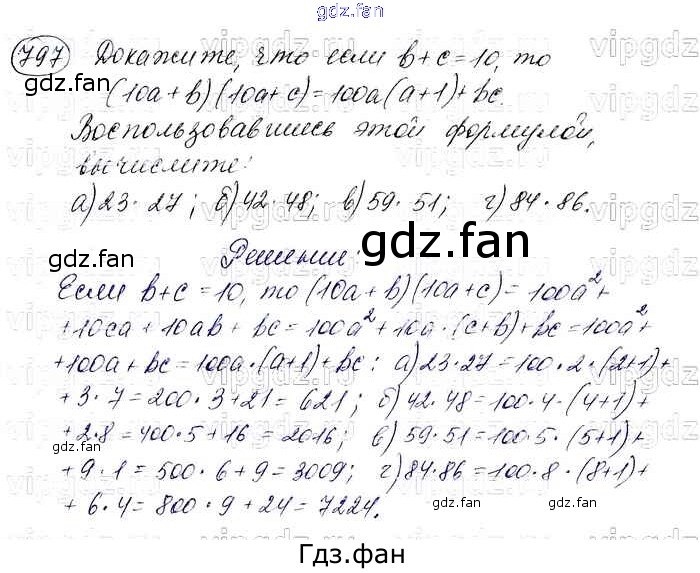 gdz.fan
797 Докажите, что если b+c=10, то
(10a+b)(10a+c)=100a(a+1)+bc.
Воспользовавшись этой формулой,
вычислите:
а) 23·27; б) 42·48; в) 59·51; г) 84·86.
gdz.fan gdz.fan
Решение:
gdz.fan
Если b+c=10, то (10a+b)(10a+c)=100a²+
+10ca+10ab+bc=100a²+10a·(c+b)+bc=100a²+
+100a+bc=100a·(a+1)+bc: а) 23·27=100·2·(2+1)+
+3·7=200·3+21=621; б) 42·48=100·4·(4+1)+
+2·8=400·5+16=2016; в) 59·51=100·5·(5+1)+
+9·1=500·6+9=3009; г) 84·86=100·8·(8+1)+
+6·4=800·9+24=7224.
gdz.fan gdz.fan
Гдз.фан